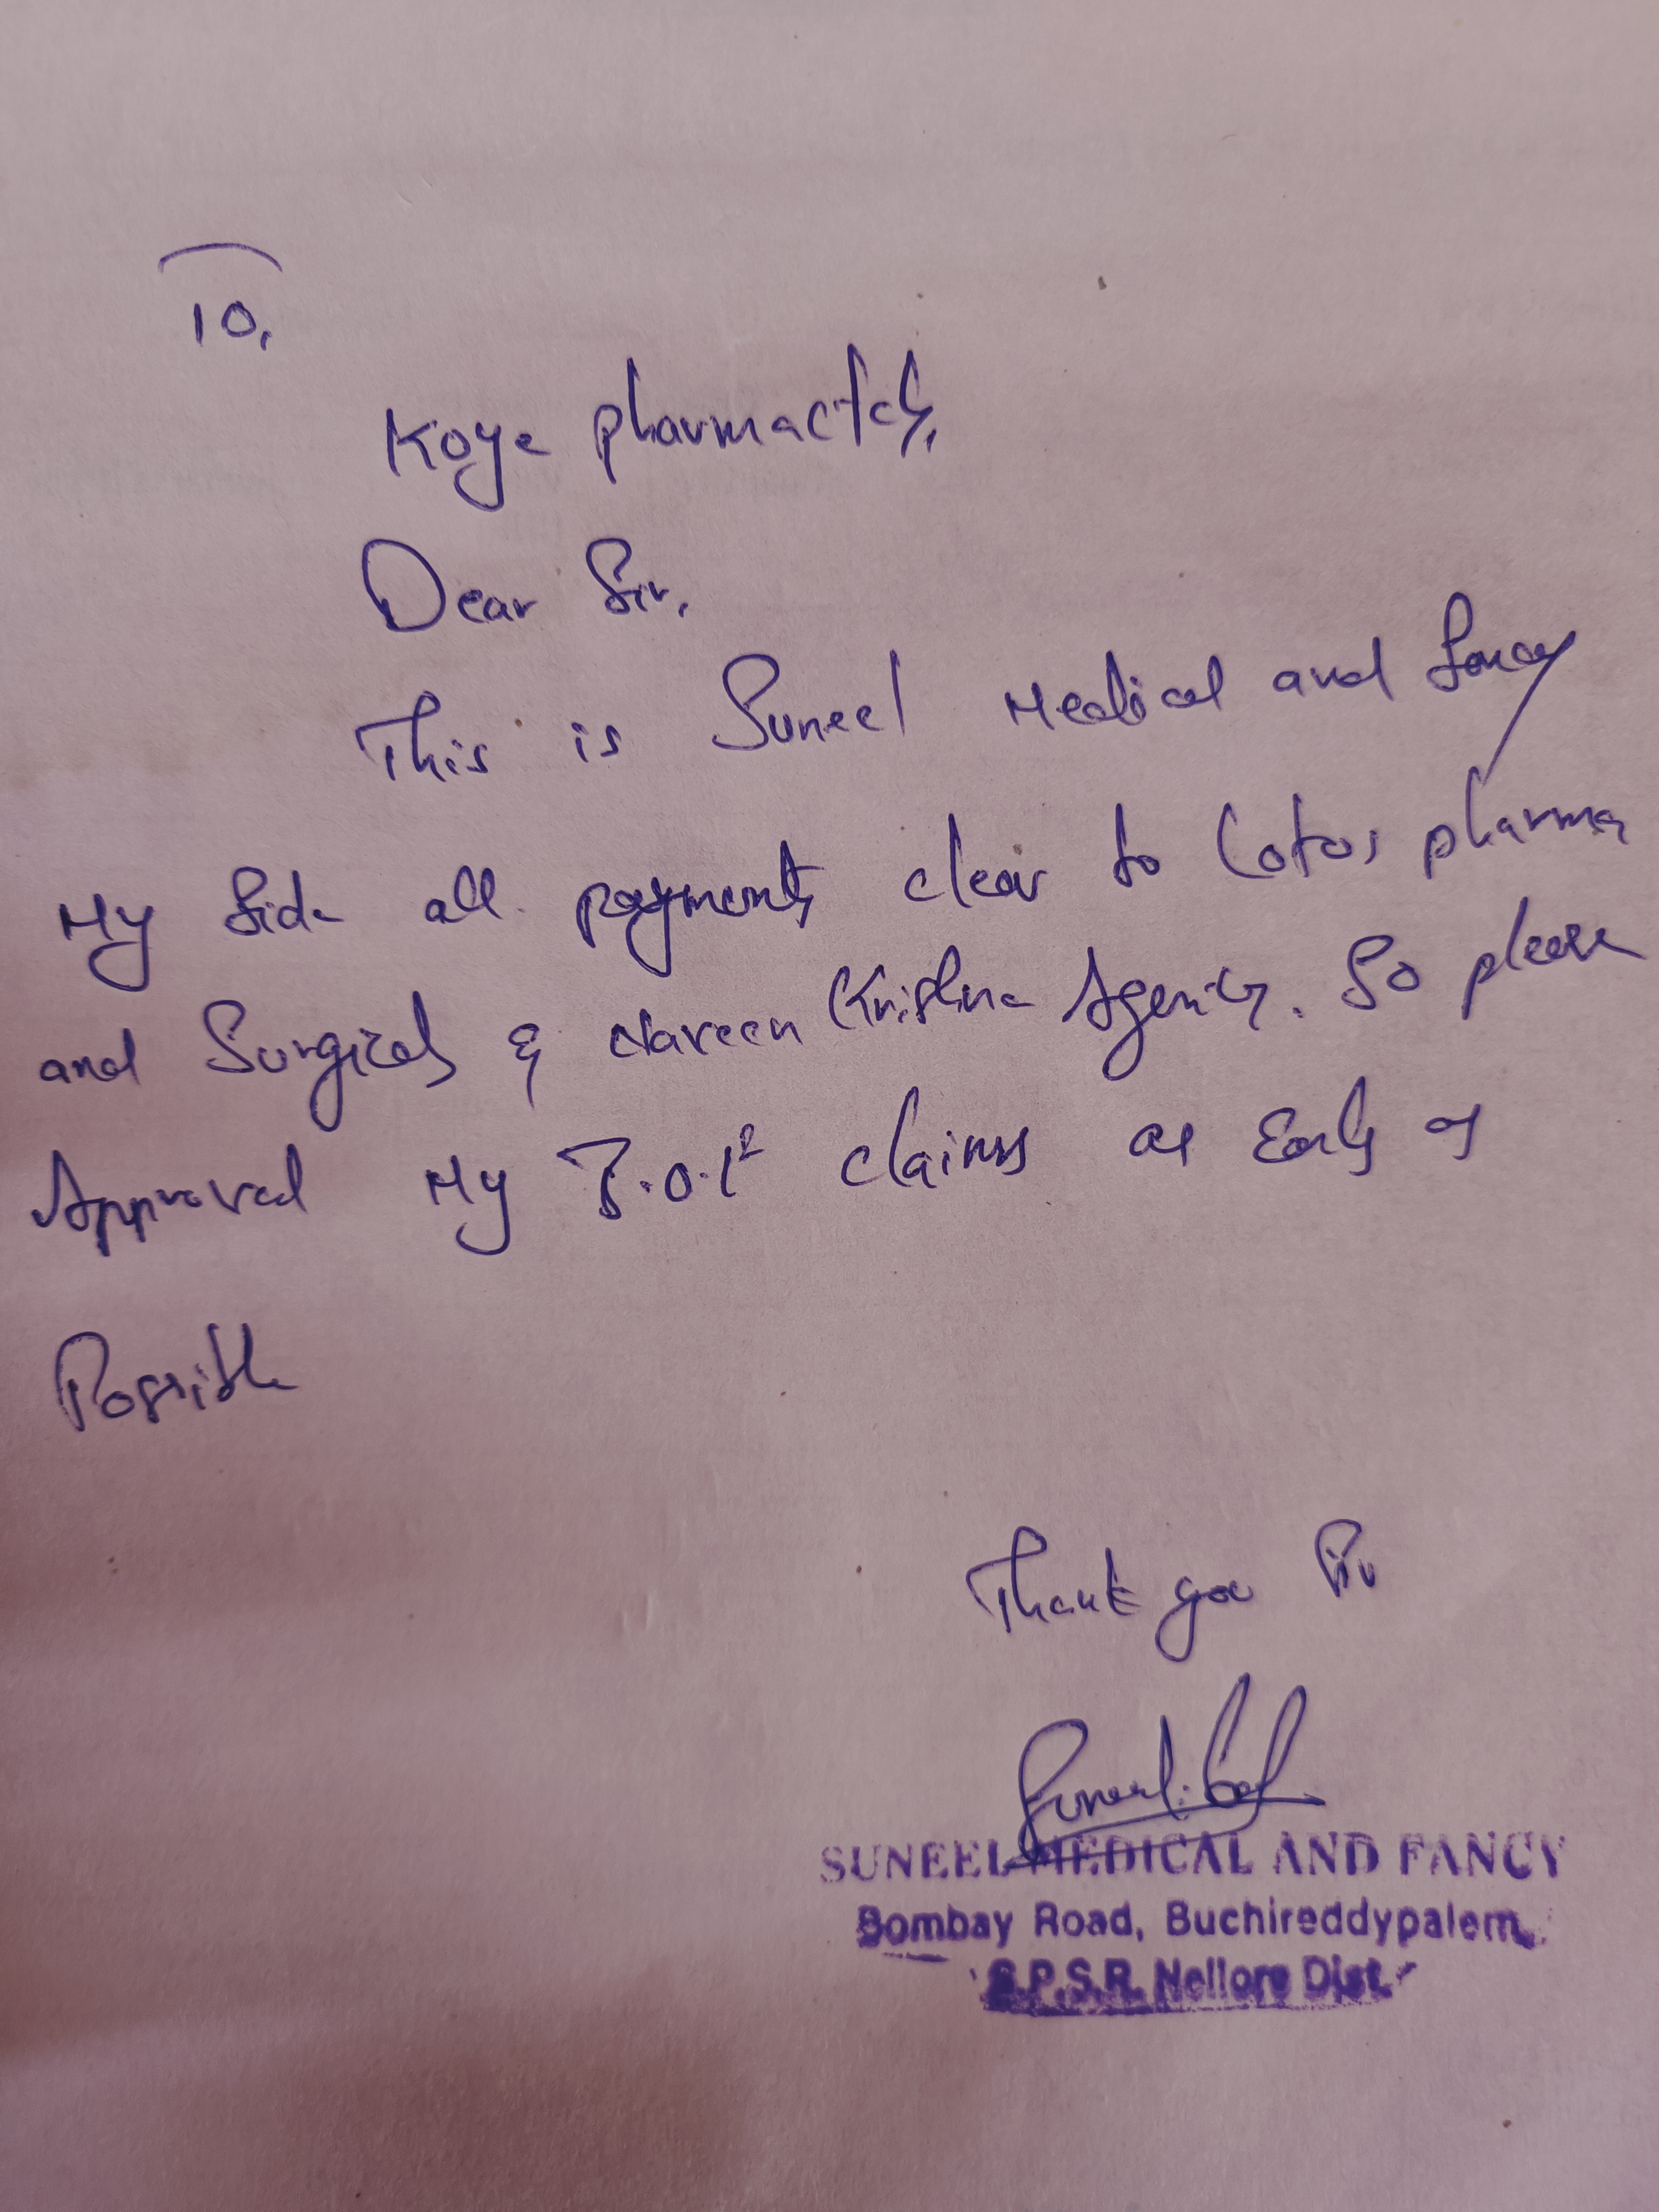 To,
Koye pharmactcls,
Dear Sir,
This is Suneel Medical and Fancy
My Side all payments clear to Lotus pharma
and Surgicals & Naveen Krishna Agency. So please
Approved My claims as Early as
Possible
Thank you Sir
Suneel.
SUNEEL MEDICAL AND FANCY
Bombay Road, Buchireddypalem,
S.P.S.R. Nellore Dist.